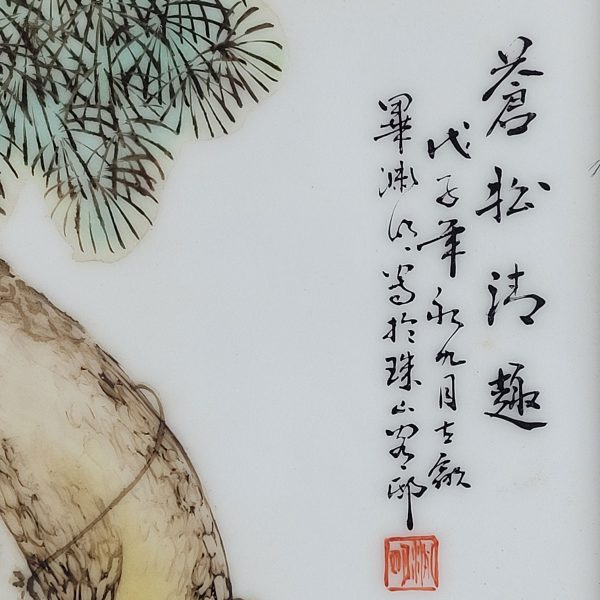 蒼松清趣
戊子年秋九月古歙
畢渊明寫於珠山客邸
渊明